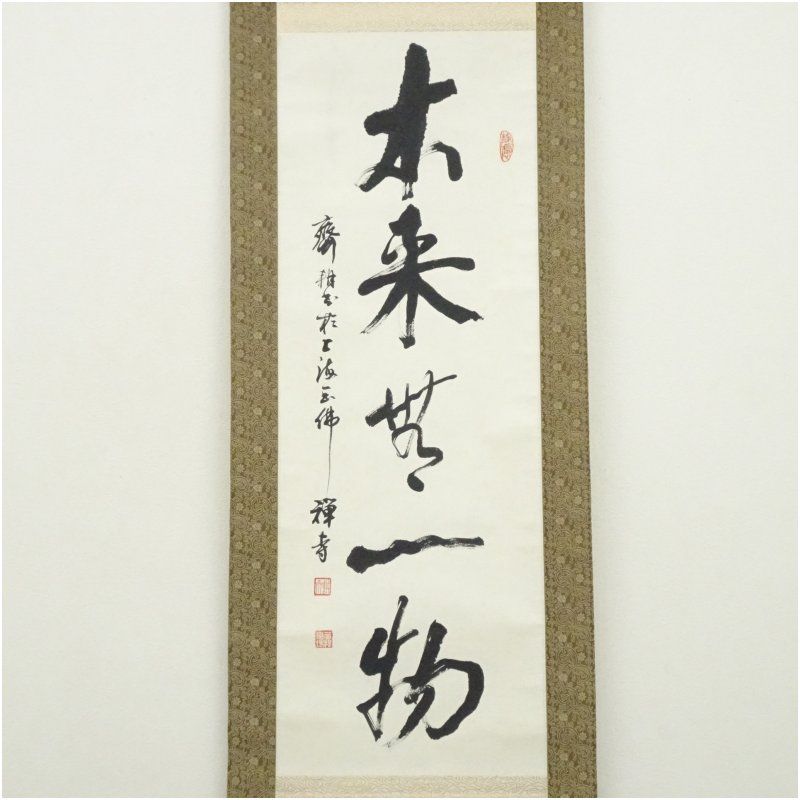 本来無一物
書於上海玉佛禪寺